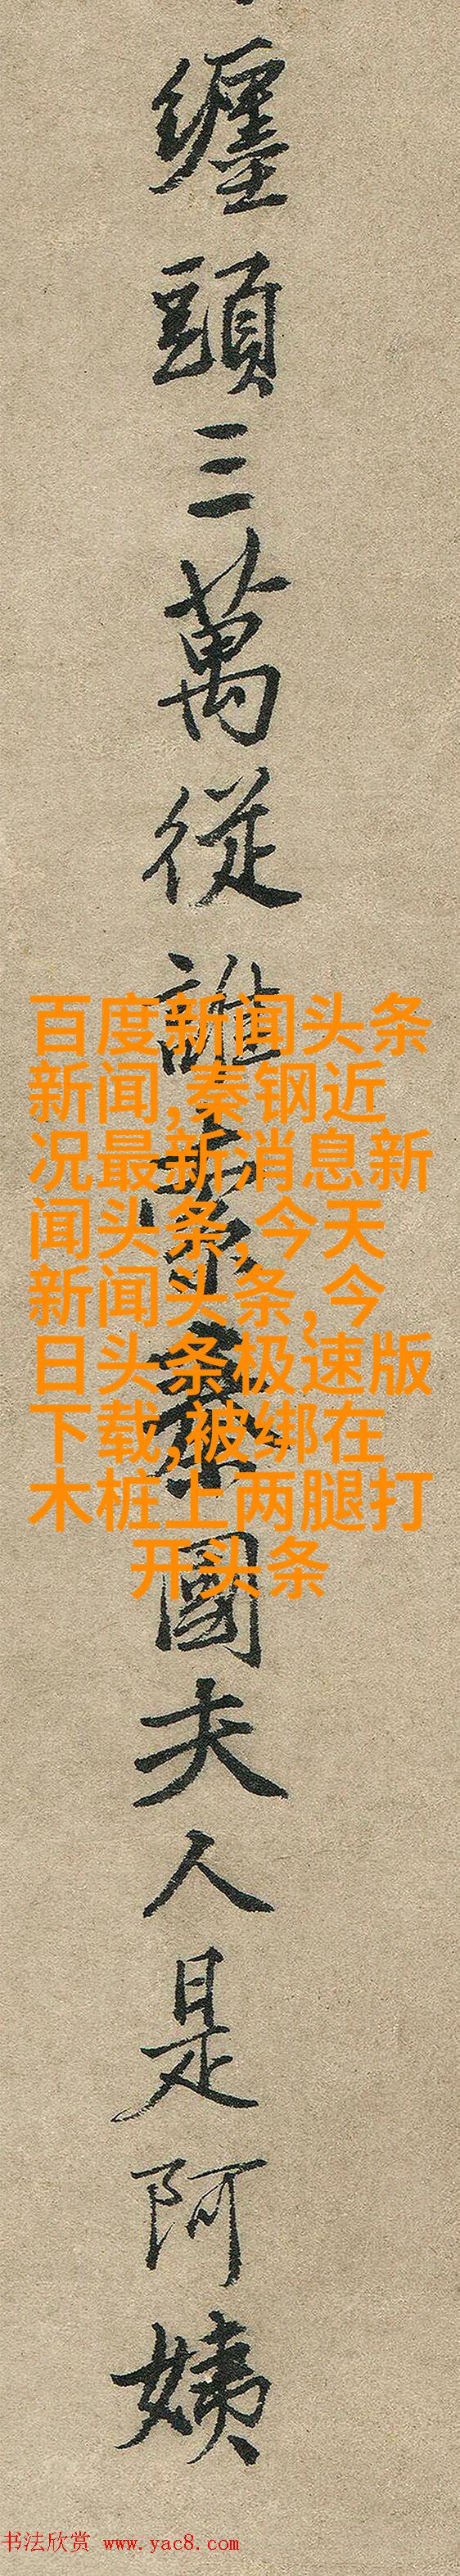 纏頭三萬從誰索秦國夫人是阿姨
百度新闻头条
新闻,秦钢近
况最新消息新
闻头条,今天
新闻头条,今
日头条极速版
下载,被绑在
木桩上两腿打
开头条
书法欣赏 www.yac8.com